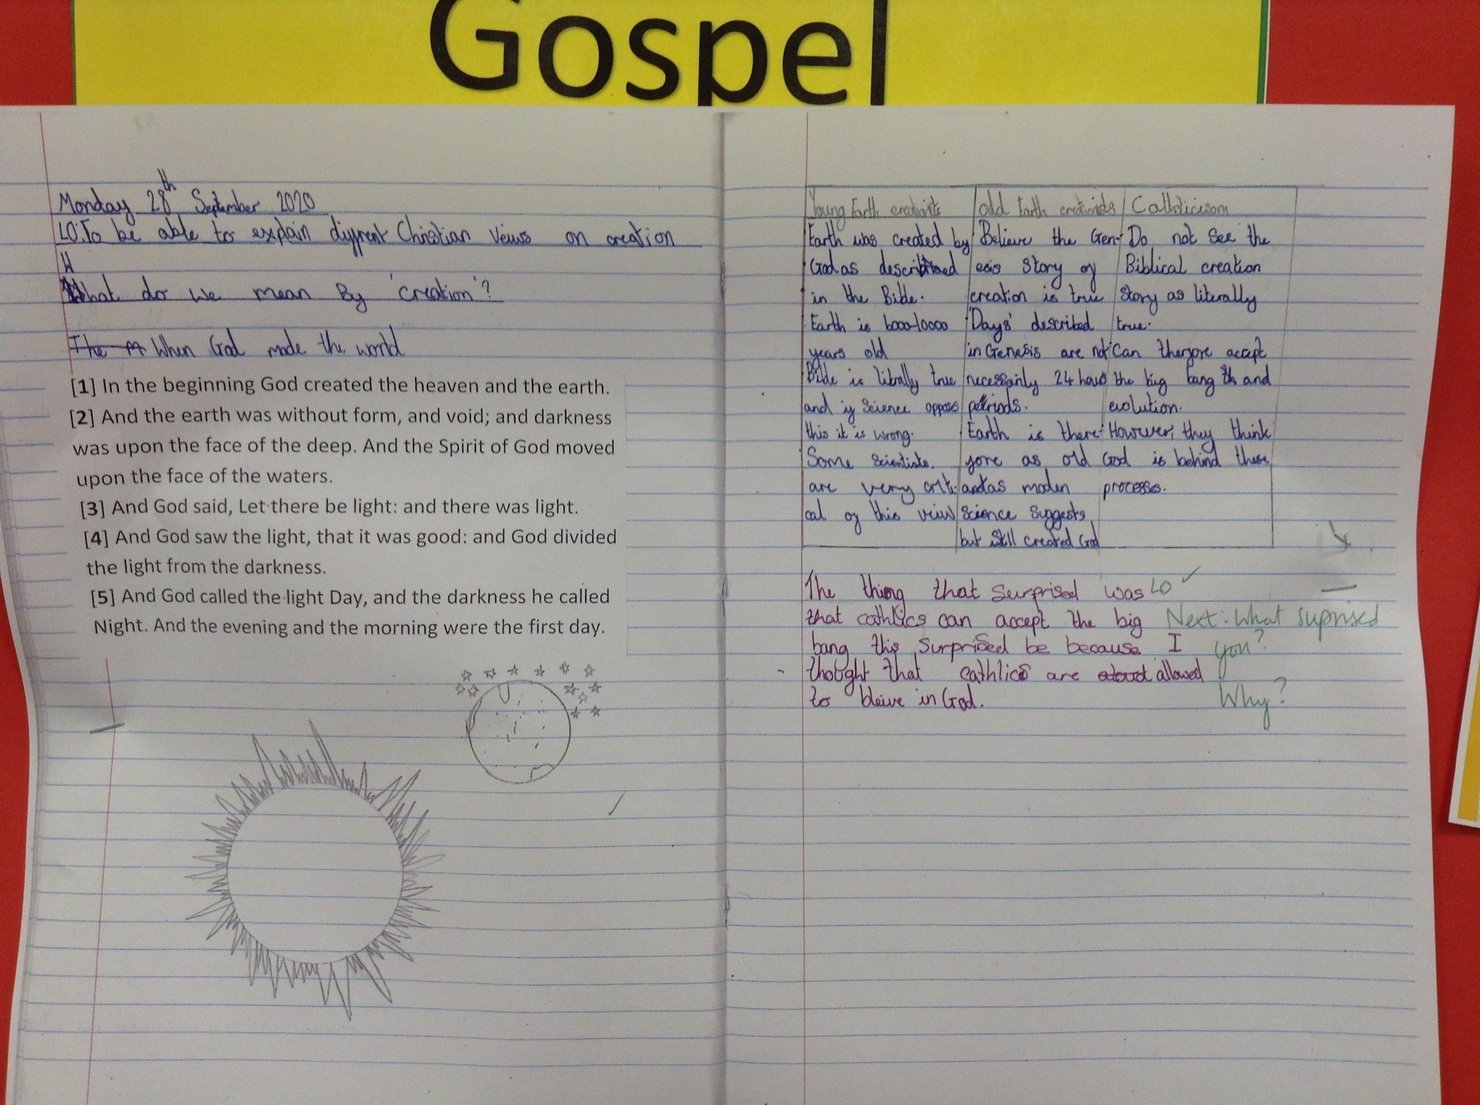 Gospel
Monday 28th September 2020
LO: To be able to explain diffrent Christian veiws on creation
W
What do we mean By 'creation'?
When God made the world
[1] In the beginning God created the heaven and the earth.
[2] And the earth was without form, and void; and darkness
was upon the face of the deep. And the Spirit of God moved
upon the face of the waters.
[3] And God said, Let there be light: and there was light.
[4] And God saw the light, that it was good: and God divided
the light from the darkness.
[5] And God called the light Day, and the darkness he called
Night. And the evening and the morning were the first day.
Young Earth creationists
Earth was created by
God as described
in the Bible.
Earth is 6000-10000
years old
Bible is litrally true
and if Science opposes
this it is wrong.
Some Scientists
are very criti-
cal of this view
old Earth creationists
Believe the Gen-
esis Story of
creation is true
'Days' described
in Genesis are not
necessarily 24 hour
periods.
Earth is there-
fore as old
as moden
Science Suggests
but still created God
Catholicism
Do not see the
Biblical creation
story as literally
true.
Can therfore accept
the big bang and
evolution.
However, they think
God is behind these
processes.
The thing that surprised was
that cathlics can accept the big
bang this surprised be because I
thought that cathlics are allowed
to bleive in God.
LO ✓
Next: What suprised
you?
Why?